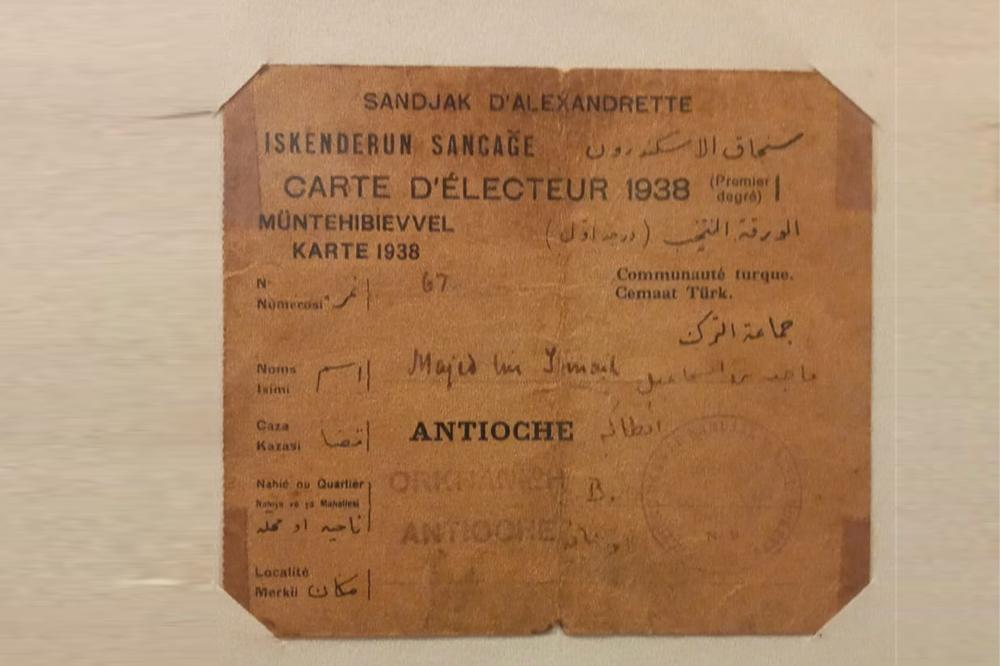 SANDJAK D'ALEXANDRETTE
ISKENDERUN SANCAĞE سنجاق الاسكندرون
CARTE D'ÉLECTEUR 1938 (Premier degré)
MÜNTEHIBIEVVEL
KARTE 1938
الورقة المنتخب (درجه اول)
N° 67
Numerosi نمر
Communauté turque.
Cemaat Türk.
جماعة الترك
Noms
Isimi اسم
Majed bin Ismail ماجد بن اسماعيل
Caza
Kazasi قضا
ANTIOCHE
Nahié ou Quartier
Nahiye ve ya Mahallesi
ناحيه او محله
B.
ANTIOCHE
Localité
Merkii مكان